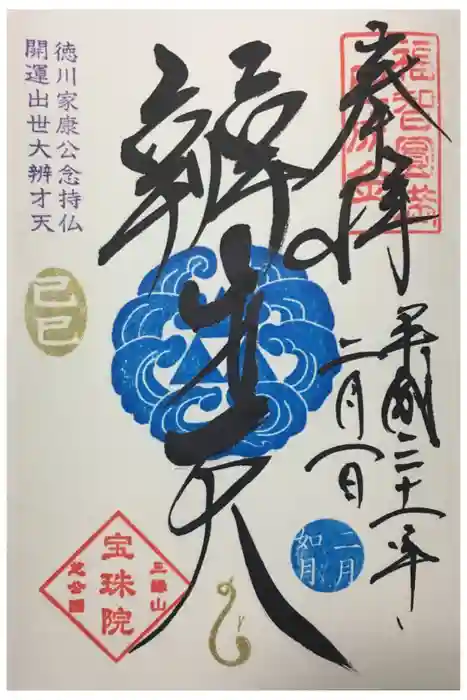 奉拝
福智圓満
平成三十一年
二月一日
辨才天
徳川家康公念持仏
開運出世大辨才天
己巳
二月
如月
三縁山
宝珠院
芝公園